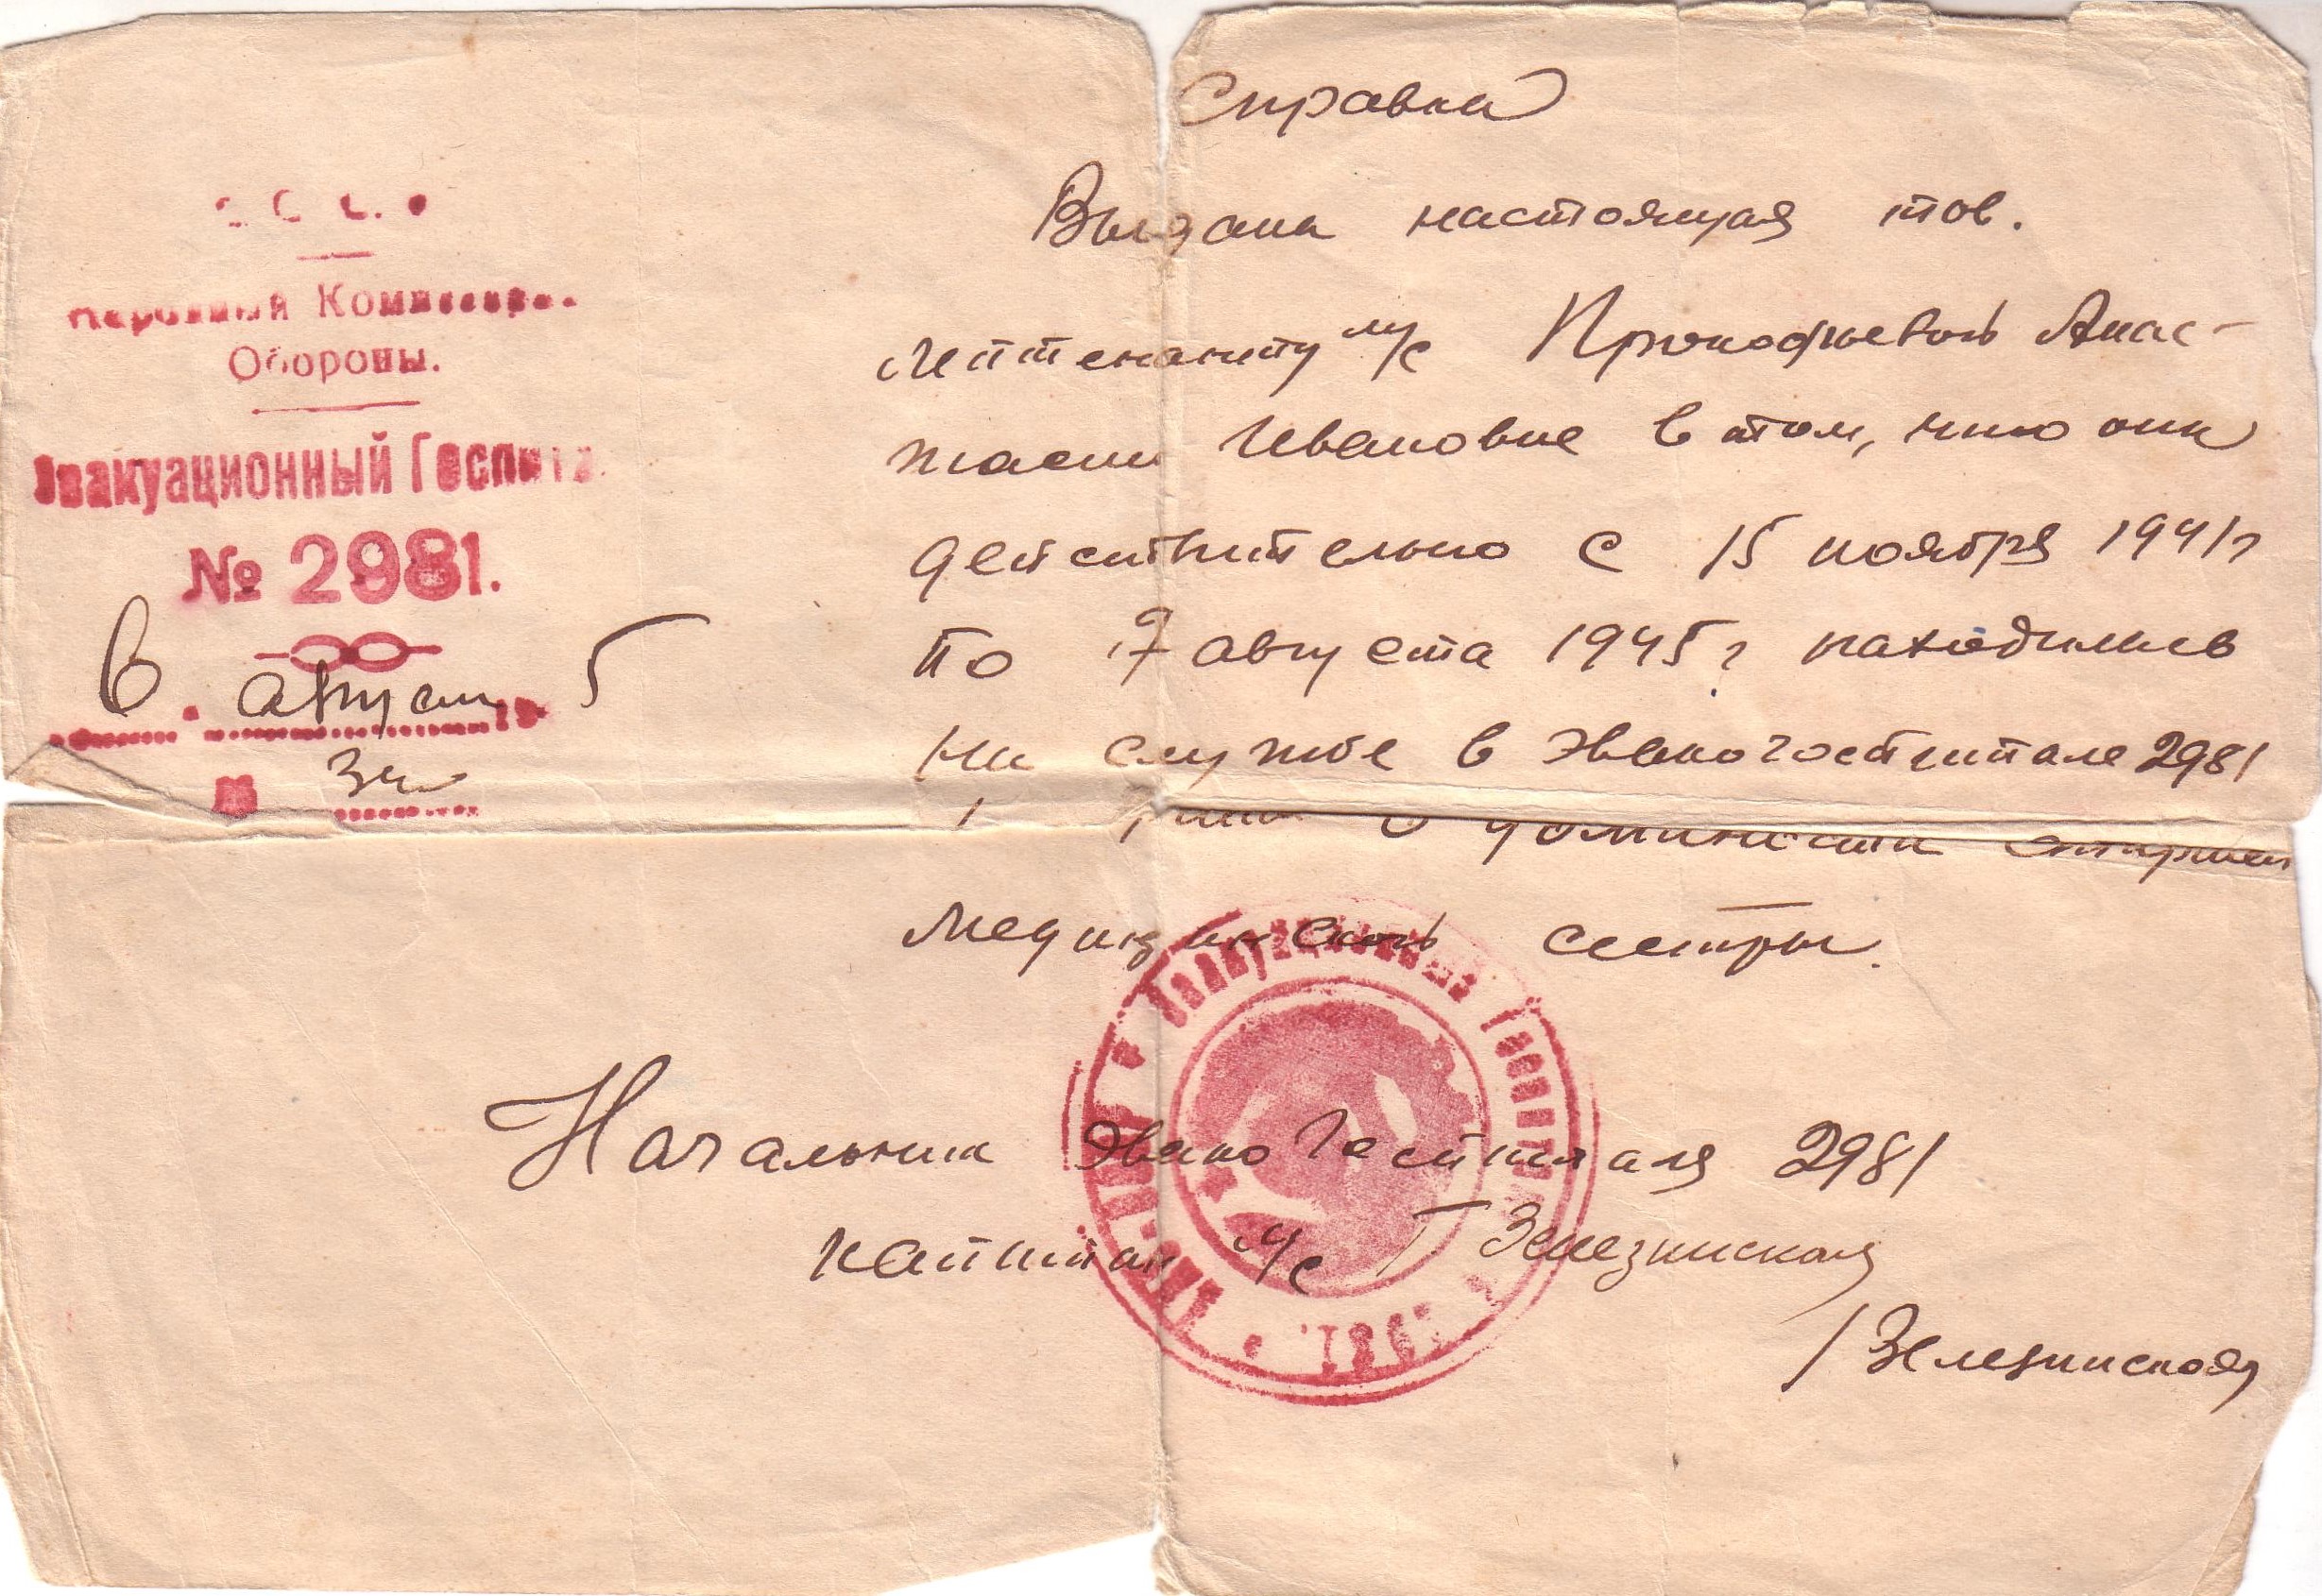 Народный Комиссар.
Обороны.
Эвакуационный Госпит
№ 2981.
августа 5
Справка
Выдана настоящая тов.
Лейтенанту м/с Прокофьевой Анас-
тасии Ивановне в том, что она
действительно с 15 ноября 1941г
по августа 1945г находилась
на службе в эвакогоспитале 2981
в должности старшей
медицинской сестры.
Эвакуационный Госпиталь
2981.
Начальник эвакогоспиталя 2981
капитан м/с Г Зелезинская
/Зелезинская